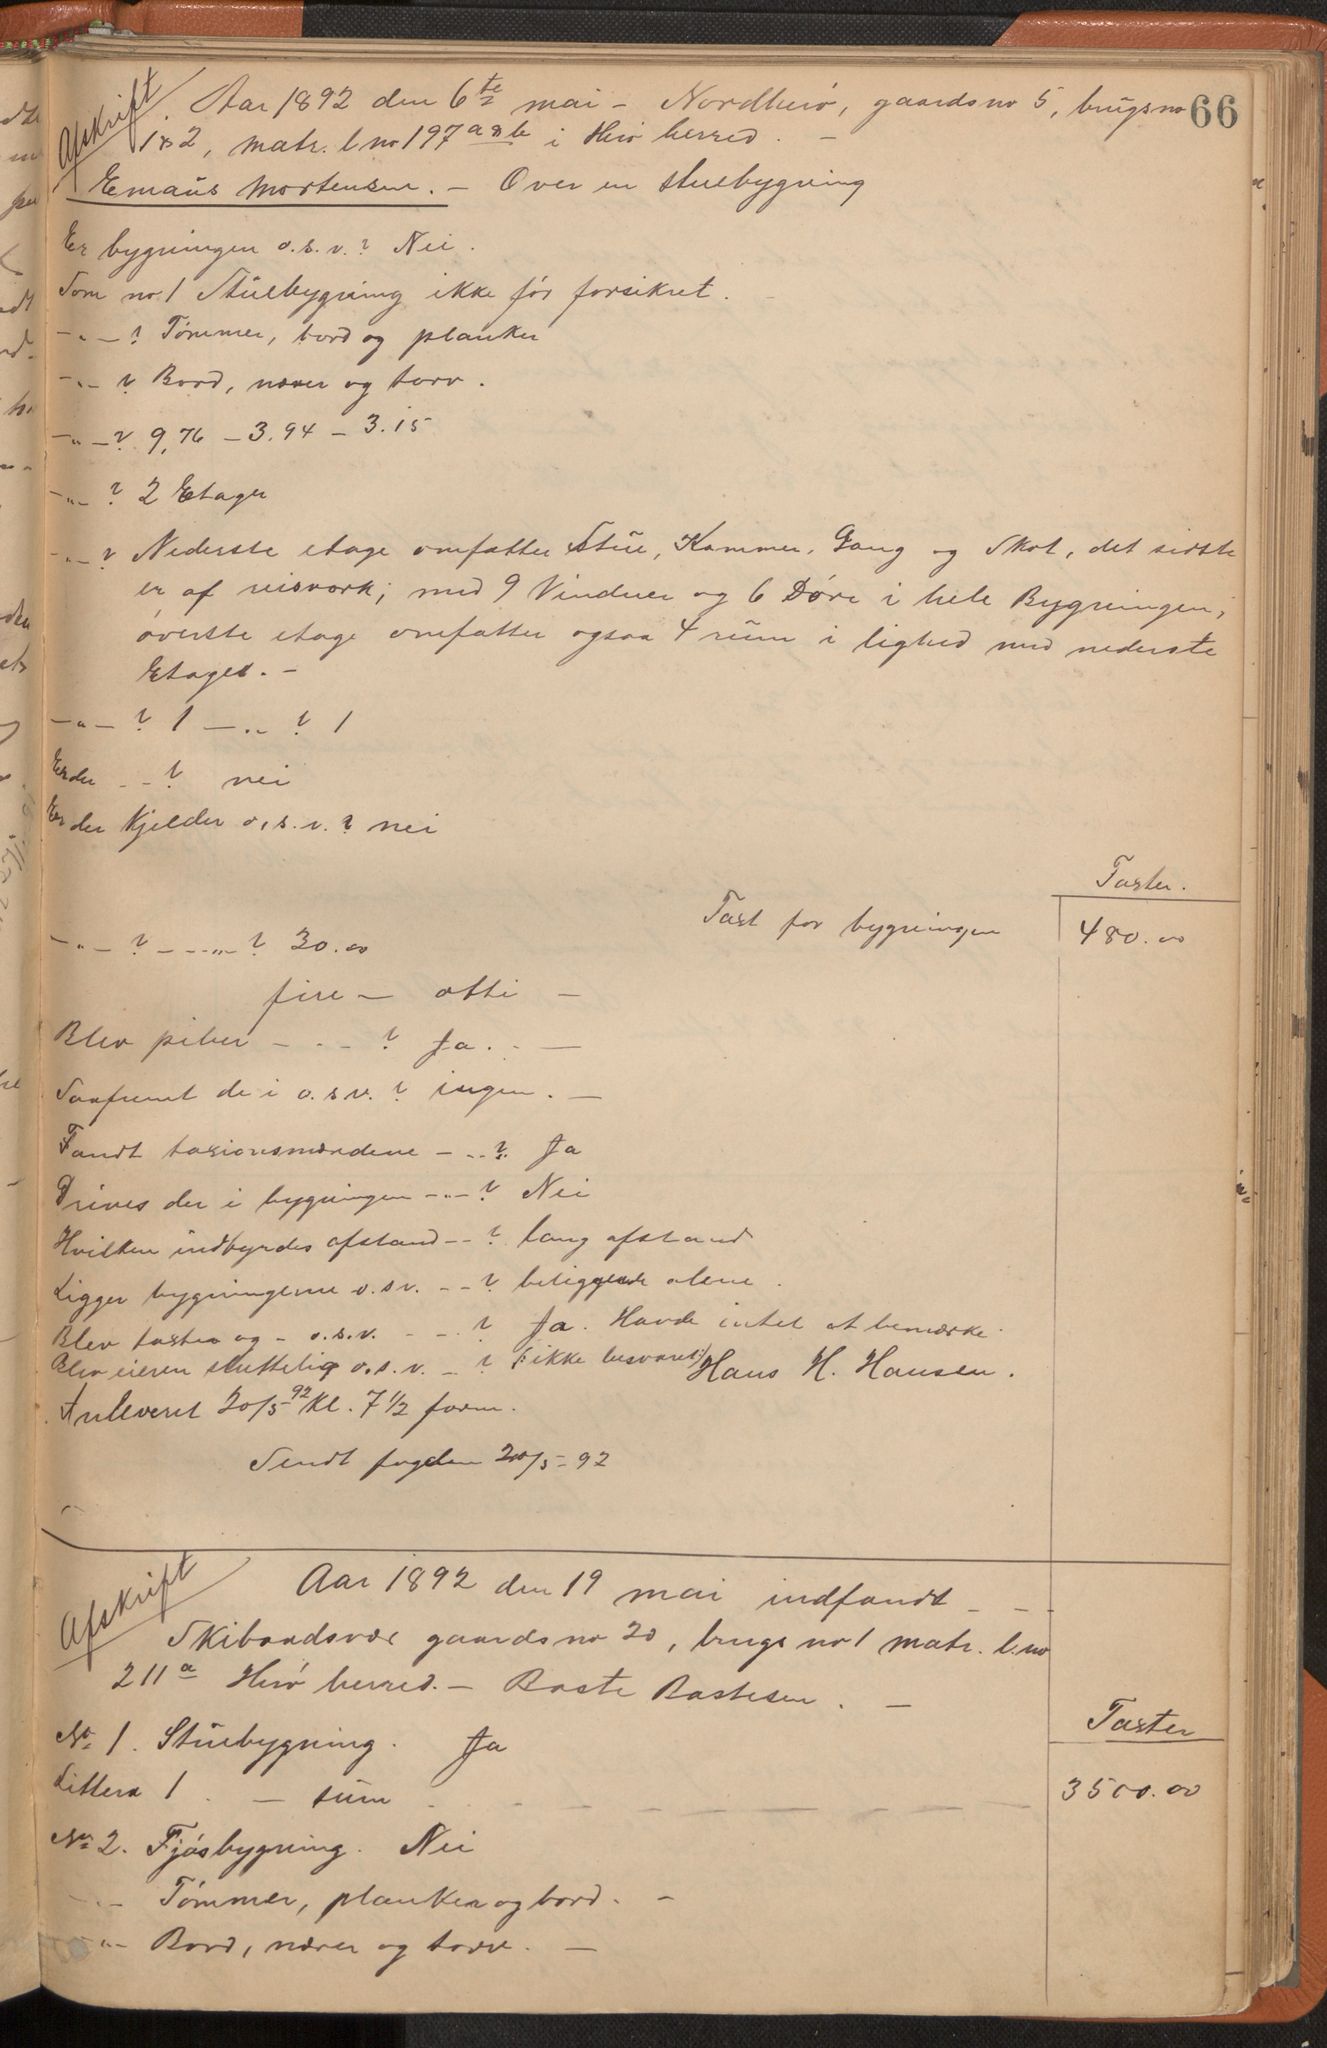 66
Afskrift
Aar 1892 den 6te mai - Nordherö, gaardsno 5, brugsno
1 & 2, matr. l no 197 a & b i Herö herred. -
Emaüs Mortensen. - Over en stuebygning
Er bygningen o.s.v.? Nei.
Som no 1 Stüebygning ikke før forsikret. -
- " - ? Tömmer, bord og planker
- " - ? Bord, næver og torv.
- " - ? 9,76 - 3.94 - 3.15
- " - ? 2 Etager
- " - ? Nederste etage omfatter Stüe, Kammer, Gang og Skot, det sidste
er af reisverk; med 9 Vinduer og 6 Döre i hele Bygningen,
överste etage omfatter ogsaa 4 rüm i lighed med nederste
Etages. -
- " - ? 1 - " - ? 1
Er der - - ? nei
Er der Kjelder o.s.v.? nei
Taxter.
Taxt for bygningen 480.00
- " - ? - - " - ? 30.00
fire - otti -
Blev piber - - - ? Ja. -
Saafremt de i o.s.v.? ingen. -
Fandt taxionsmændene - " - ? Ja
Drives der i bygningen - " - ? Nei
Hvilken indbyrdes afstand - - ? lang afstand
Ligger bygningerne o.s.v. - - ? beliggende alene.
Blev taxten og - o.s.v. - - ? Ja. Havde intet at bemærke.
Blev eieren sluttelig o.s.v. - ? (: ikke besvaret :) Hans H. Hansen.
Anleveret 20/5 92 Kl. 7 1/2 form.
Sendt fogden 20/5 - 92
Afskrift
Aar 1892 den 19 mai indfandt - - -
Skibaadsvær gaardsno 20, brugsno 1 matr. l. no
211 a Herö herred. - Baste Bastesen. -
Taxter
No 1. Stüebygning. Ja
Littera 1. - süm - - - - - 3500.00
No 2. Fjösbygning. Nei
- " - Tömmer, planker og bord. -
- " - Bord, næver og torv. -